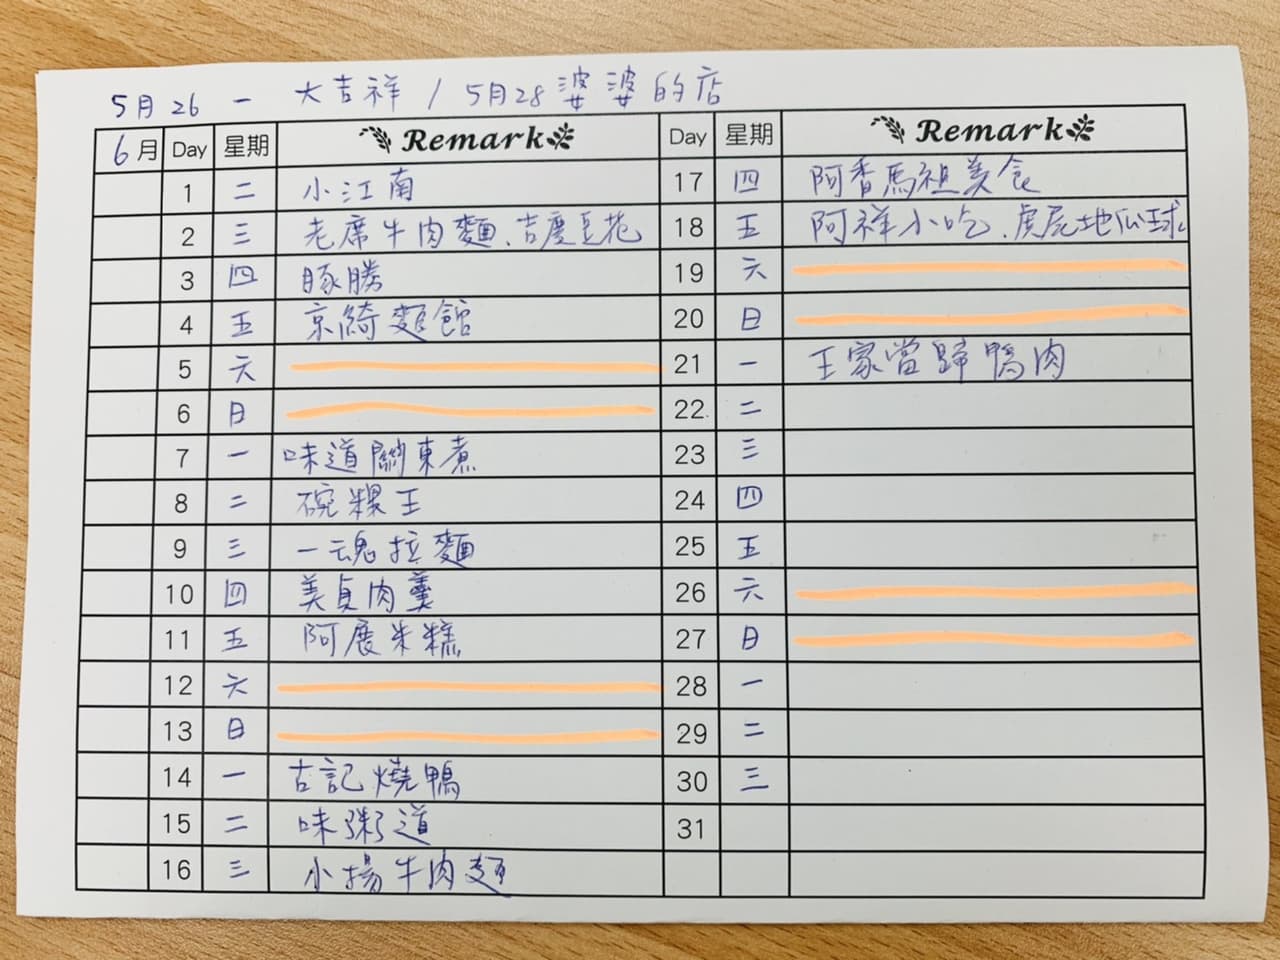 5月26 一 大吉祥 / 5月28 婆婆的店
6月 Day 星期 Remark Day 星期 Remark
1 二 小江南 17 四 阿香馬祖美食
2 三 老席牛肉麵、吉慶豆花 18 五 阿祥小吃、虎尾地瓜球
3 四 豚勝 19 六
4 五 京綺麵館 20 日
5 六 21 一 王家當歸鴨肉
6 日 22 二
7 一 味道關東煮 23 三
8 二 碗粿王 24 四
9 三 一魂拉麵 25 五
10 四 美貞肉羹 26 六
11 五 阿展米糕 27 日
12 六 28 一
13 日 29 二
14 一 古記燒鴨 30 三
15 二 味粥道 31
16 三 小揚牛肉麵